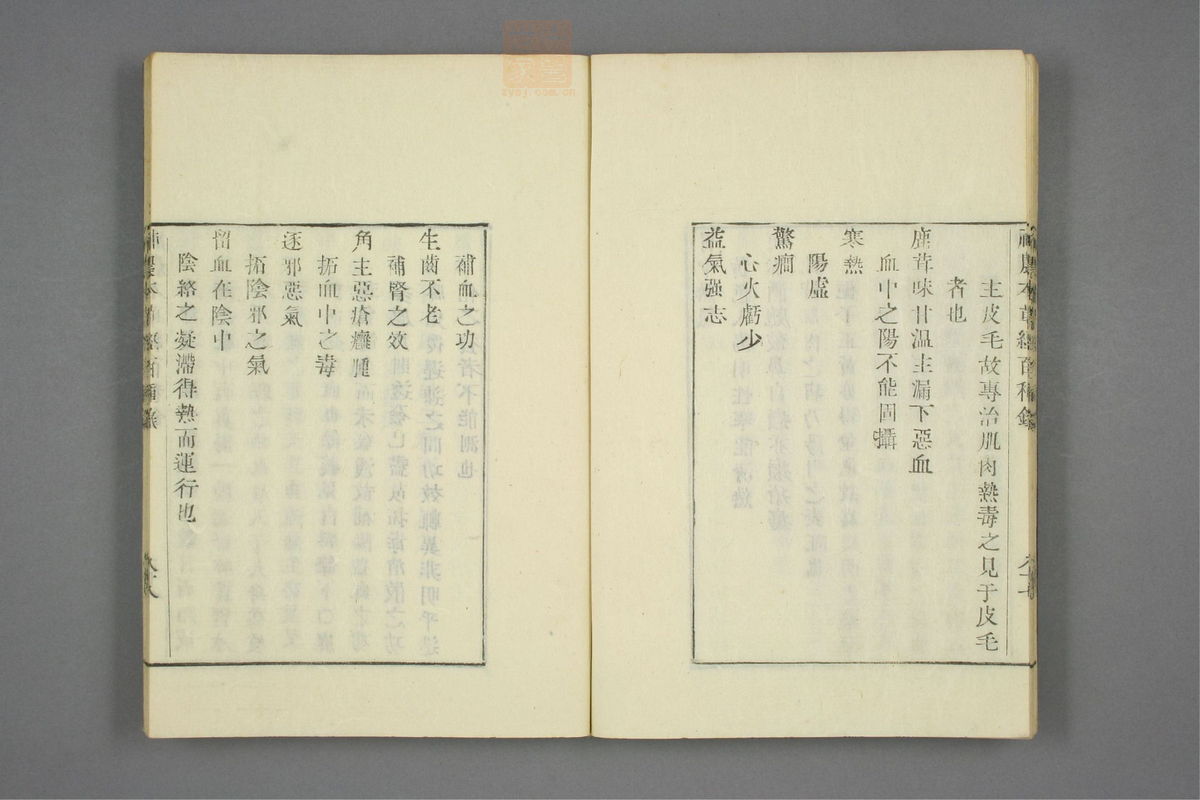 主皮毛故專治肌肉熱毒之見于皮毛
者也
鹿茸味甘温主漏下惡血
血中之陽不能固攝
寒熱
陽虛
驚癇
心火虧少
益氣强志
補血之功
生齒不老
補腎之效
角主惡瘡癰腫
拓血中之毒
逐邪惡氣
拓陰邪之氣
留血在陰中
陰絡之凝滯得熱而運行也
zysj.com.cn